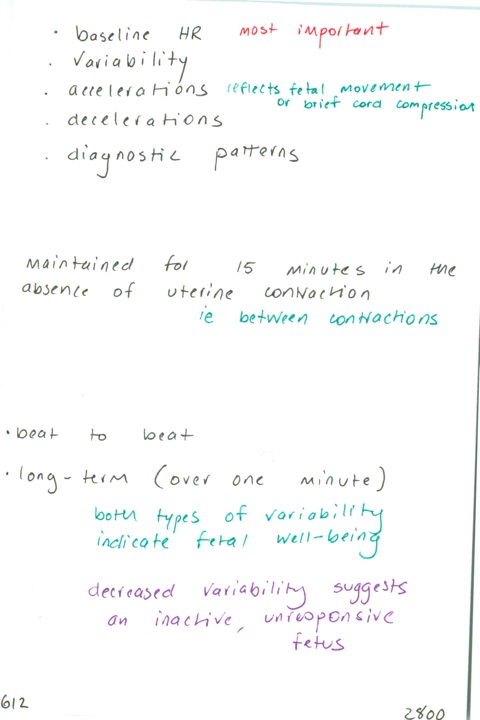 · baseline HR most important
· variability
· accelerations reflects fetal movement
or brief cord compression
· decelerations
· diagnostic patterns
maintained for 15 minutes in the
absence of uterine contraction
ie between contractions
· beat to beat
· long-term (over one minute)
both types of variability
indicate fetal well-being
decreased variability suggests
an inactive, unresponsive
fetus
612
2800